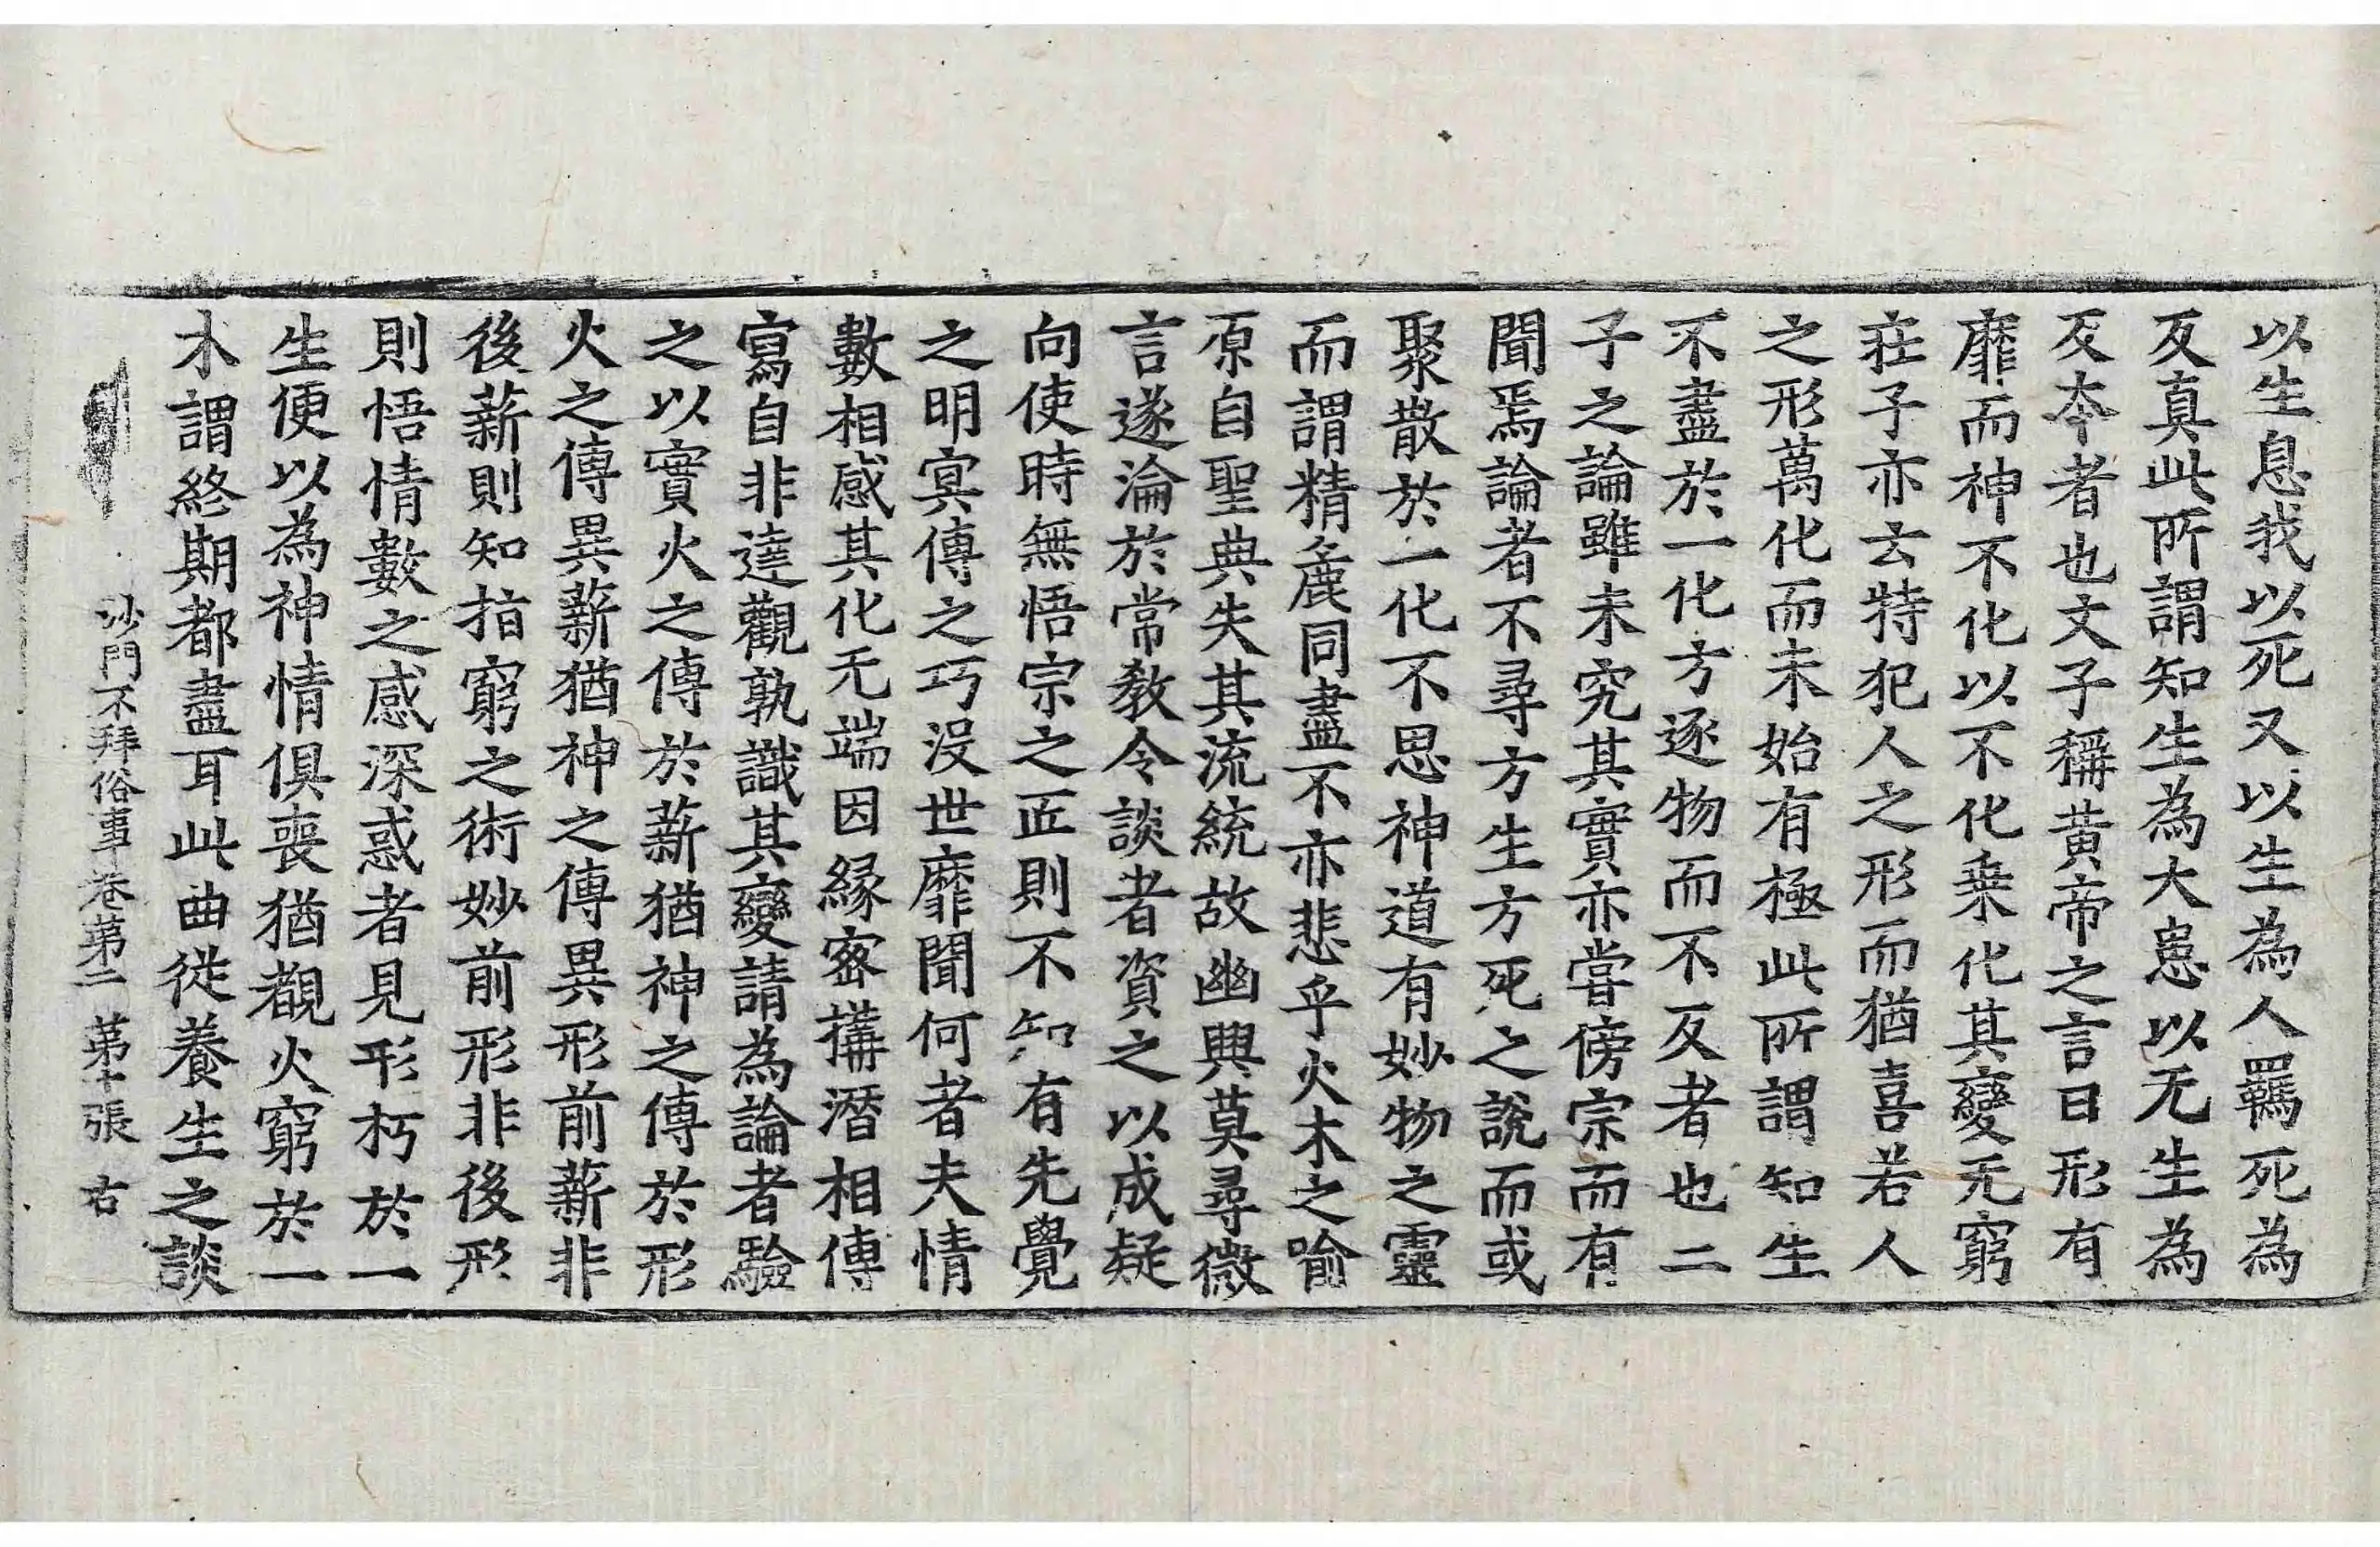 以生息我以死又以生為人羈死為
反真此所謂知生為大患以无生為
反夲者也文子稱黃帝之言曰形有
靡而神不化以不化乗化其變无窮
莊子亦云特犯人之形而猶喜若人
之形萬化而未始有極此所謂知生
不盡於一化方逐物而不反者也二
子之論雖未究其實亦甞傍宗而有
聞焉論者不尋方生方死之說而或
聚散於一化不思神道有妙物之靈
而謂精麁同盡不亦悲乎火木之喻
原自聖典失其流統故幽興莫尋微
言遂淪於常教令談者資之以成疑
向使時無悟宗之匠則不知有先覺
之明冥傳之巧沒世靡聞何者夫情
數相感其化无端因緣密搆潛相傳
寫自非達觀孰識其變請為論者驗
之以實火之傳於薪猶神之傳於形
火之傳異薪猶神之傳異形前薪非
後薪則知指窮之術妙前形非後形
則悟情數之感深惑者見形朽於一
生便以為神情俱喪猶覩火窮於一
木謂終期都盡耳此曲從養生之談
沙門不拜俗事卷第二 第十張 右